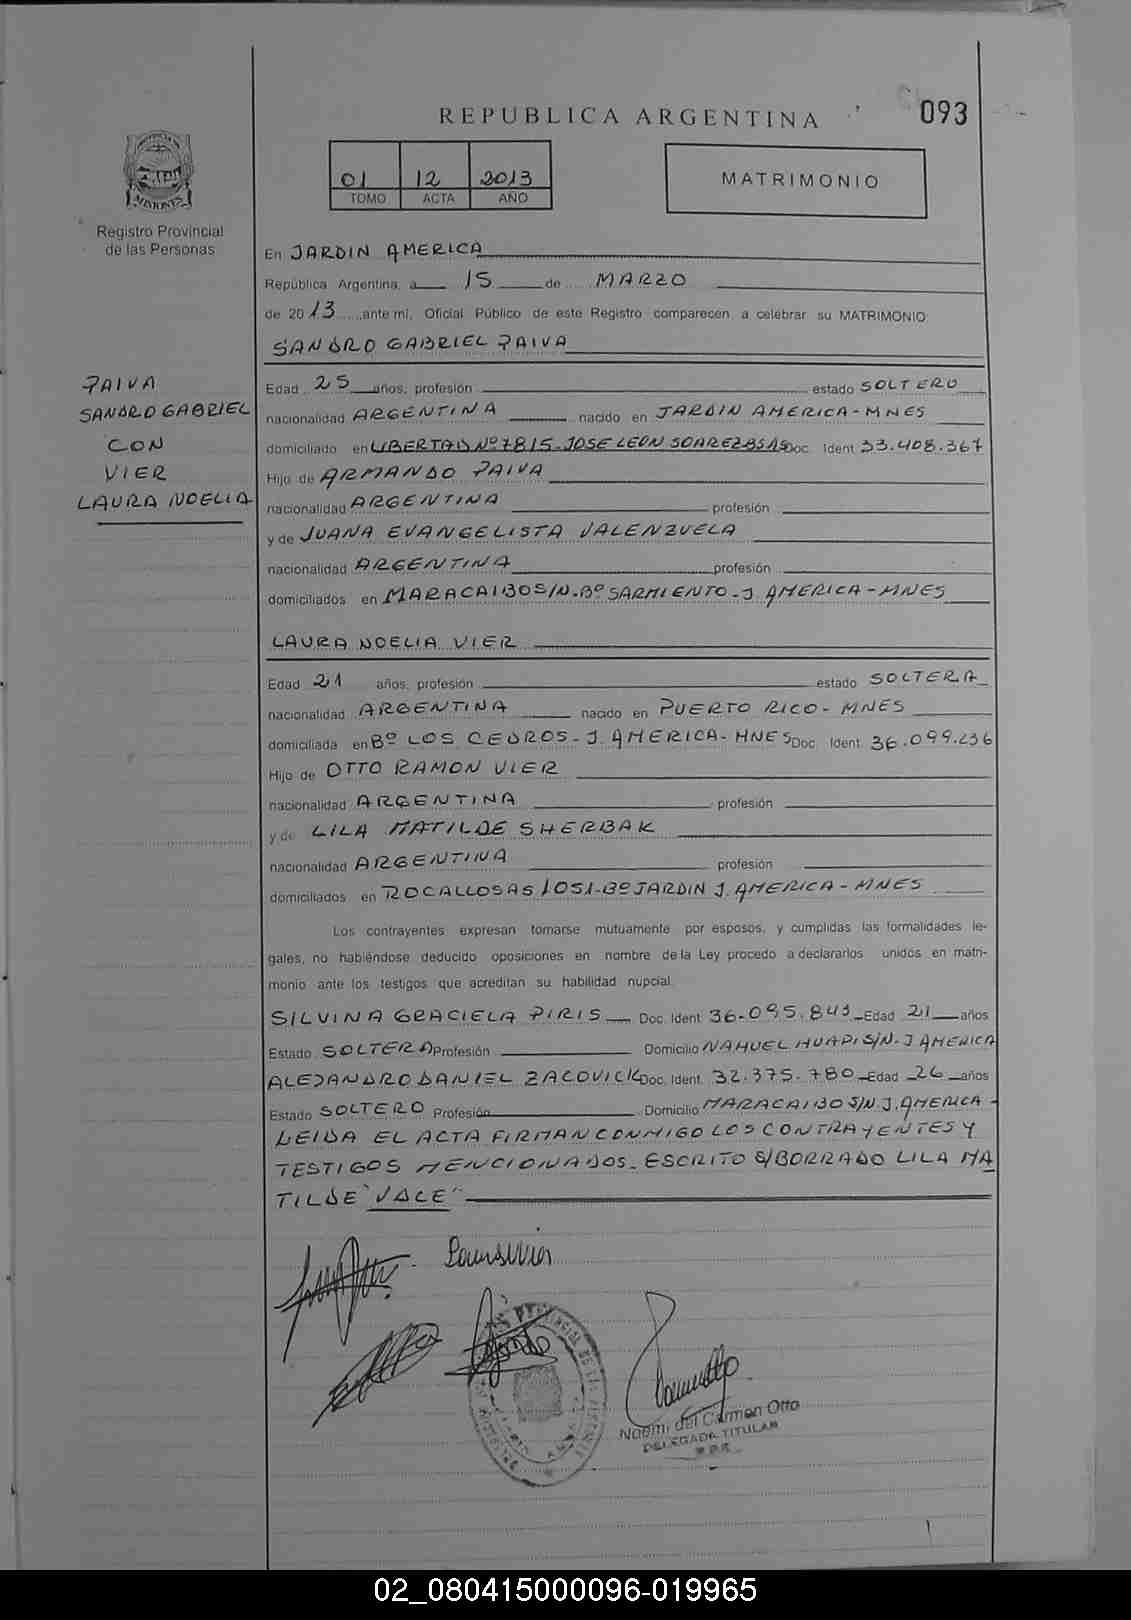 REPUBLICA ARGENTINA
093
01 12 2013
TOMO ACTA AÑO
MATRIMONIO
MISIONES
Registro Provincial
de las Personas
En JARDIN AMERICA
República Argentina, a 15 de MARZO
de 2013 ante mí, Oficial Público de este Registro comparecen a celebrar su MATRIMONIO
SANDRO GABRIEL PAIVA
PAIVA
SANDRO GABRIEL
CON
VIER
LAURA NOELIA
Edad 25 años, profesión estado SOLTERO
nacionalidad ARGENTINA nacido en JARDIN AMERICA-MNES
domiciliado en LIBERTAD Nº 7815-JOSE LEON SOAREZ BSAS Doc. Ident 33.408.367
Hijo de ARMANDO PAIVA
nacionalidad ARGENTINA profesión
y de JUANA EVANGELISTA VALENZUELA
nacionalidad ARGENTINA profesión
domiciliados en MARACAIBO S/N-Bº SARMIENTO-J. AMERICA-MNES
LAURA NOELIA VIER
Edad 21 años, profesión estado SOLTERA
nacionalidad ARGENTINA nacido en PUERTO RICO-MNES
domiciliada en Bº LOS CEDROS-J. AMERICA-MNES Doc. Ident 36.099.236
Hijo de OTTO RAMON VIER
nacionalidad ARGENTINA profesión
y de LILA MATILDE SHERBAK
nacionalidad ARGENTINA profesión
domiciliados en ROCALLOSAS 1051-Bº JARDIN J. AMERICA-MNES
Los contrayentes expresan tomarse mutuamente por esposos, y cumplidas las formalidades le-
gales, no habiéndose deducido oposiciones en nombre de la Ley procedo a declararlos unidos en matri-
monio ante los testigos que acreditan su habilidad nupcial.
SILVINA GRACIELA PIRIS Doc. Ident. 36.095.843 Edad 21 años
Estado SOLTERA Profesión Domicilio NAHUEL HUAPI S/N-J AMERICA
ALEJANDRO DANIEL ZACOVICK Doc. Ident. 32.375.780 Edad 26 años
Estado SOLTERO Profesión Domicilio MARACAIBO S/N.J.AMERICA-
LEIDA EL ACTA FIRMAN CONMIGO LOS CONTRAYENTES Y
TESTIGOS MENCIONADOS. ESCRITO S/BORRADO LILA MA
TILDE "VALE"
Noemi del Carmen Otto
DELEGADA TITULAR
02_080415000096-019965